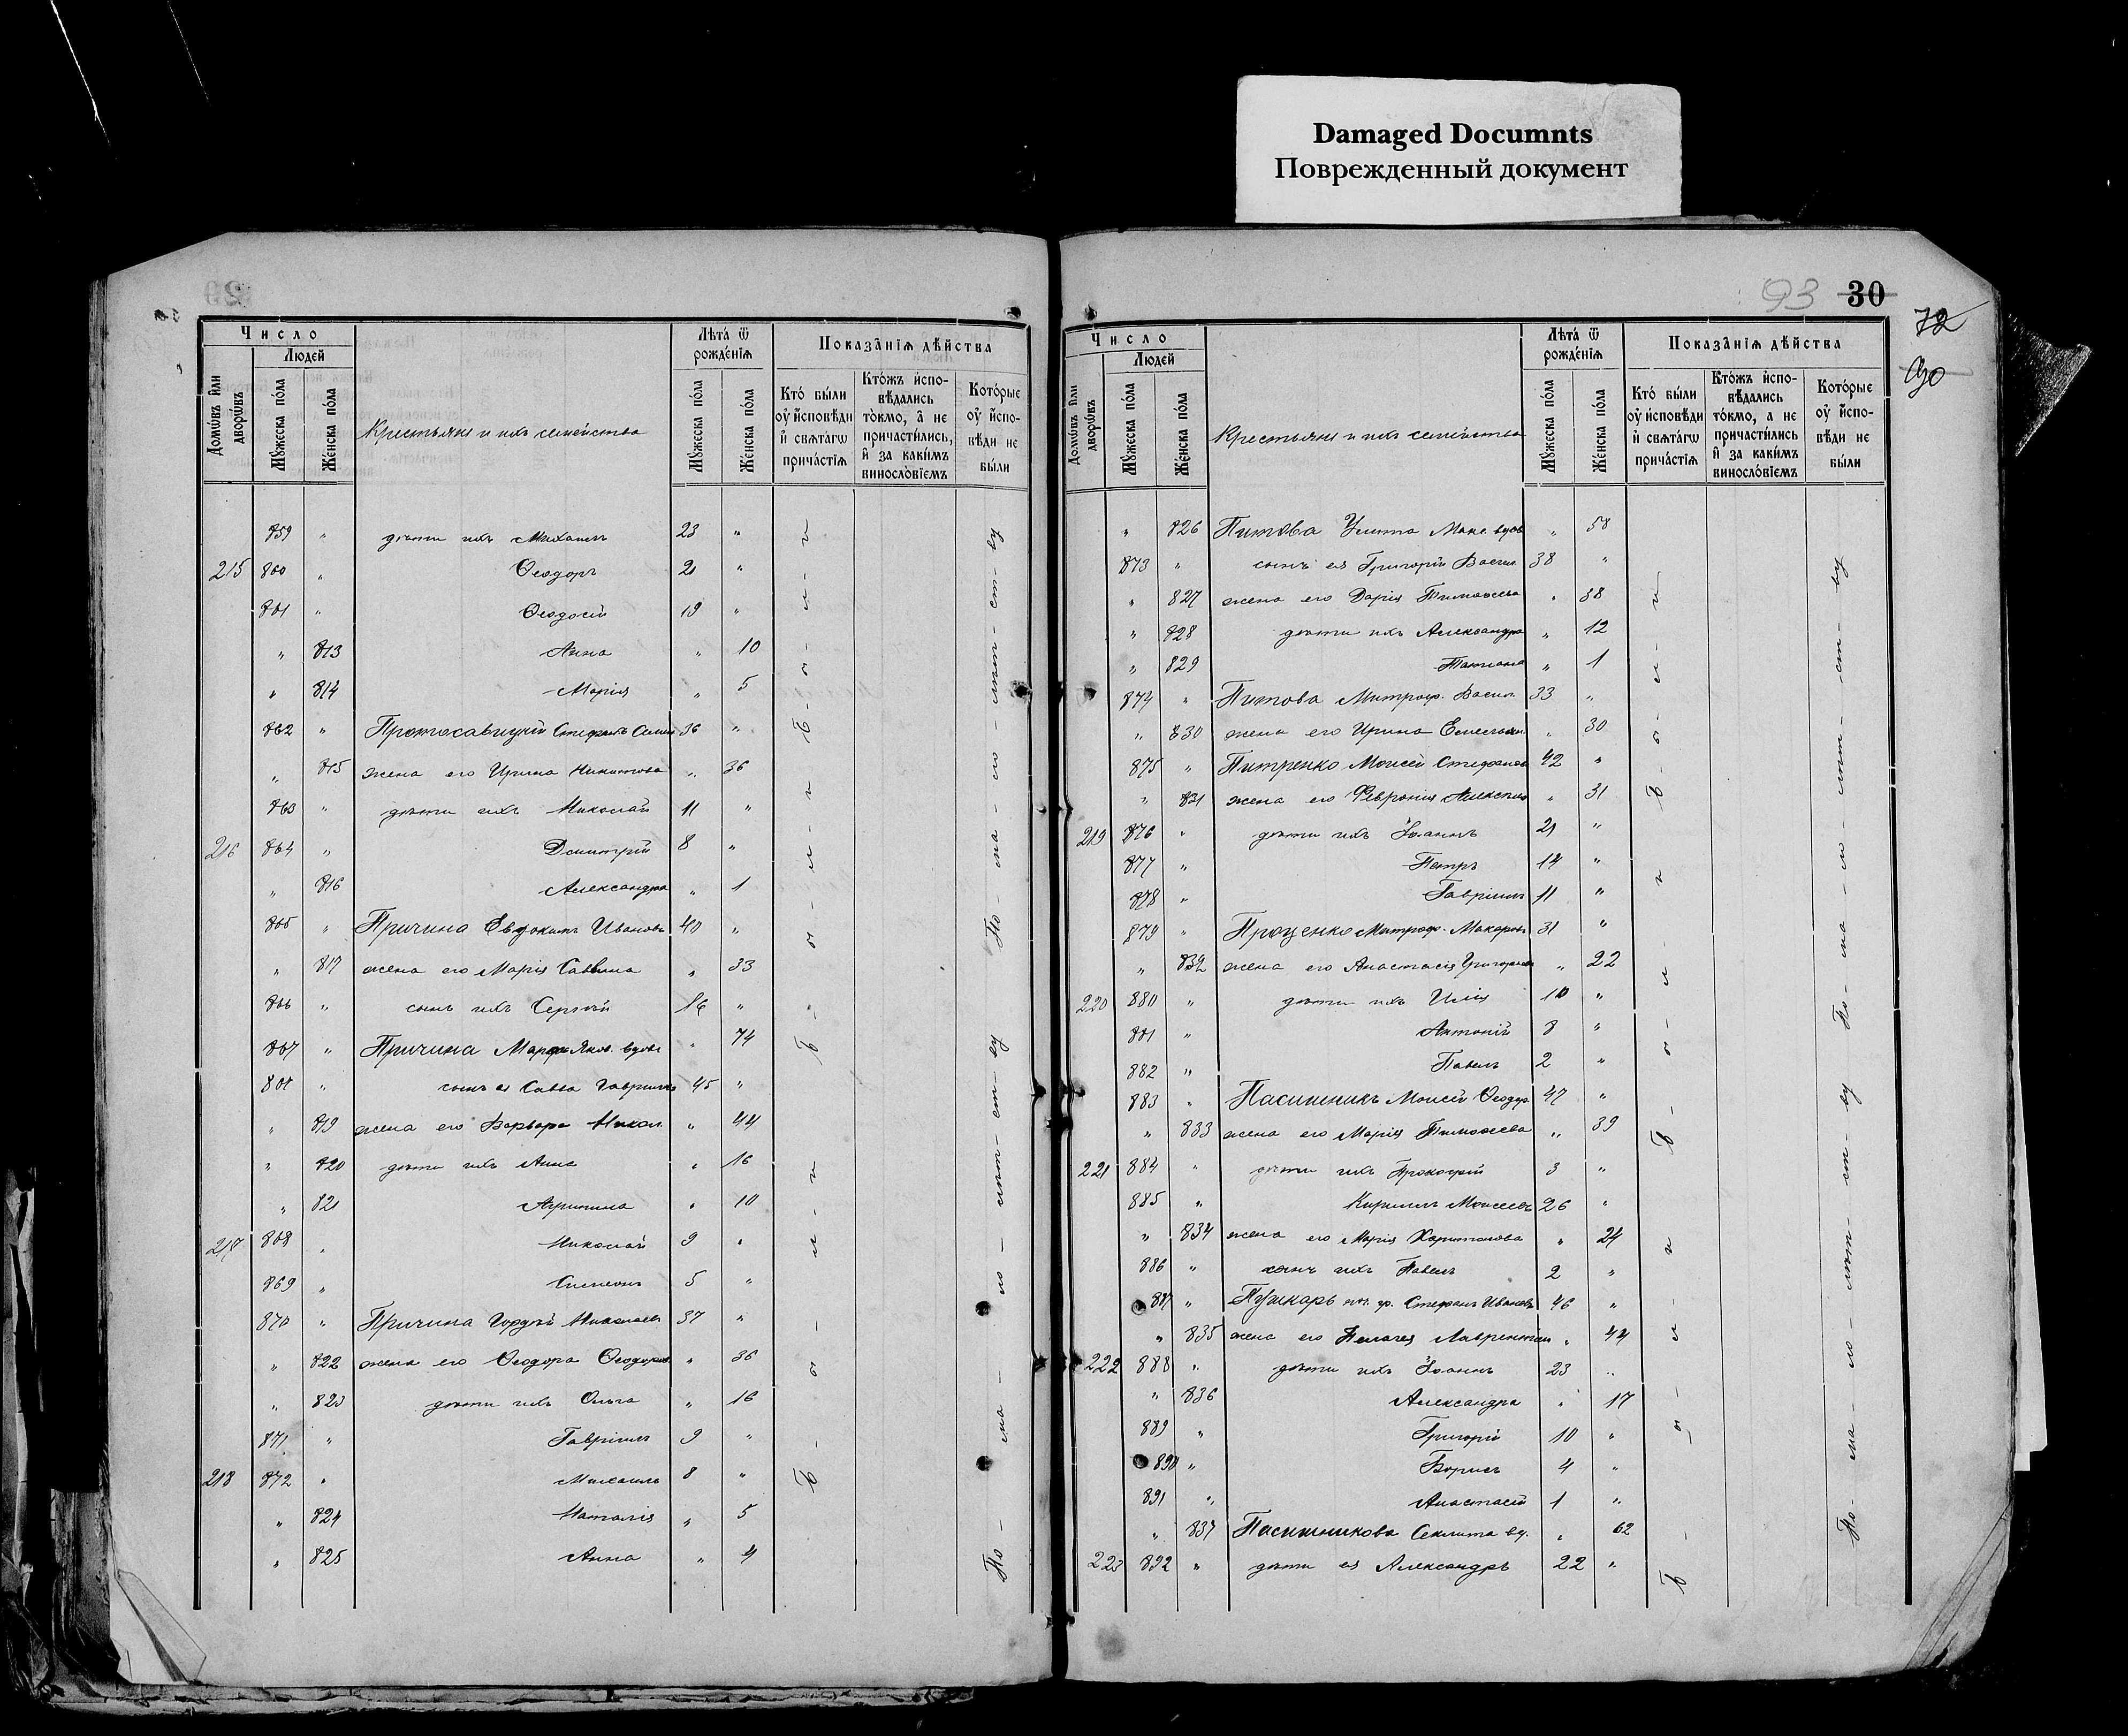 Damaged Documnts
Поврежденный документ
29
Число
Людей
Домѡвъ и҆ли дворѡвъ
Мꙋжеска по́ла
Же́нска по́ла
Крестьяне и ихъ семейства
Лѣта̀ ѿ рожде́нїѧ
Мꙋжеска по́ла
Же́нска по́ла
Показа̂нїѧ дѣ́йства
Кто̀ бы́ли оу҆ и҆сповѣди и҆ свѧта́гѡ прича́стїѧ
Кто́жъ и҆спо-вѣдались то́кмо, а҆ не причасти́лись, и҆ за каки́мъ винослов́їемъ
Кото́рые оу҆ и҆спо-вѣди не бы́ли
859 " дѣти ихъ Михаилъ 23 "
215 860 " Ѳеодоръ 21 "
861 " Ѳеодосій 19 "
" 813 Анна " 10
" 814 Марія " 5
862 " Протосавицкій Стефанъ 36 "
" 815 жена его Ирина Никитова " 36
863 " дѣти ихъ Николай 11 "
216 864 " Димитрій 8 "
" 816 Александра " 1
865 " Причина Евдокимъ Ивановъ 40 "
" 817 жена его Марія Саввина " 33
866 " сынъ ихъ Сергѣй 16 "
867 " Причина Марфа Яков. вдова " 74
868 " сынъ ея Савва Гавриловъ 45 "
" 819 жена его Варвара Никол. " 44
" 820 дѣти ихъ Анна " 16
" 821 Агрипина " 10
217 868 " Николай 9 "
869 " Симеонъ 5 "
870 " Причина Гордѣй Николаевъ 37 "
" 822 жена его Ѳеодора Ѳеодоров. " 36
" 823 дѣти ихъ Ольга " 16
871 " Гавріилъ 9 "
218 872 " Михаилъ 8 "
" 824 Наталія " 5
" 825 Анна " 4
Б - ы - л - и
Б - ы - л - и
Б - ы - л - и
По - ма - ло - лѣт - ст - ву
По - ма - ло - лѣт - ст - ву
93 30
72
90
Число
Людей
Домѡвъ и҆ли дворѡвъ
Мꙋжеска по́ла
Же́нска по́ла
Крестьяне и ихъ семейства
Лѣта̀ ѿ рожде́нїѧ
Мꙋжеска по́ла
Же́нска по́ла
Показа̂нїѧ дѣ́йства
Кто̀ бы́ли оу҆ и҆сповѣди и҆ свѧта́гѡ прича́стїѧ
Кто́жъ и҆спо-вѣдались то́кмо, а не причасти́лись и҆ за каки́мъ винослов́їемъ
Кото́рые оу҆ и҆спо-вѣди не бы́ли
" 826 Питова Улита Макс. вдова " 58
873 " сынъ ея Григорій Васил. 38 "
" 827 жена его Дарія Тимоѳеева " 38
" 828 дѣти ихъ Александра " 12
" 829 Татіана " 1
874 " Питова Митроф. Васил. 33 "
" 830 жена его Ирина Емельян. " 30
875 " Питренко Моисей Стефанов 42 "
" 831 жена его Февронія Алексѣева " 31
219 876 " дѣти ихъ Іоаннъ 21 "
877 " Петръ 14 "
878 " Гавріилъ 11 "
879 " Проценко Митроф. Макаровъ 31 "
" 832 жена его Анастасія Григорьева " 22
220 880 " дѣти ихъ Илія 10 "
881 " Антоній 8 "
882 " Павелъ 2 "
883 " Пасишникъ Моисей Ѳеодор. 47 "
" 833 жена его Марія Тимоѳеева " 39
221 884 " дѣти ихъ Прокофій 3 "
885 " Кириллъ Моисеевъ 26 "
" 834 жена его Марія Харитонова " 24
886 " сынъ ихъ Павелъ 2 "
887 " Пушкарь Стефанъ Ивановъ 46 "
" 835 жена его Пелагея Лаврентіева " 44
222 888 " дѣти ихъ Іоаннъ 23 "
" 836 Александра " 17
889 " Григорій 10 "
890 " Борисъ 4 "
891 " Анастасій 1 "
" 837 Пасишникова Секлита вд. " 62
223 892 " дѣти ея Александръ 22 "
Б - ы - л - и
Б - ы - л - и
Б - ы - л - и
По - ма - ло - лѣт - ст - ву
По - ма - ло - лѣт - ст - ву